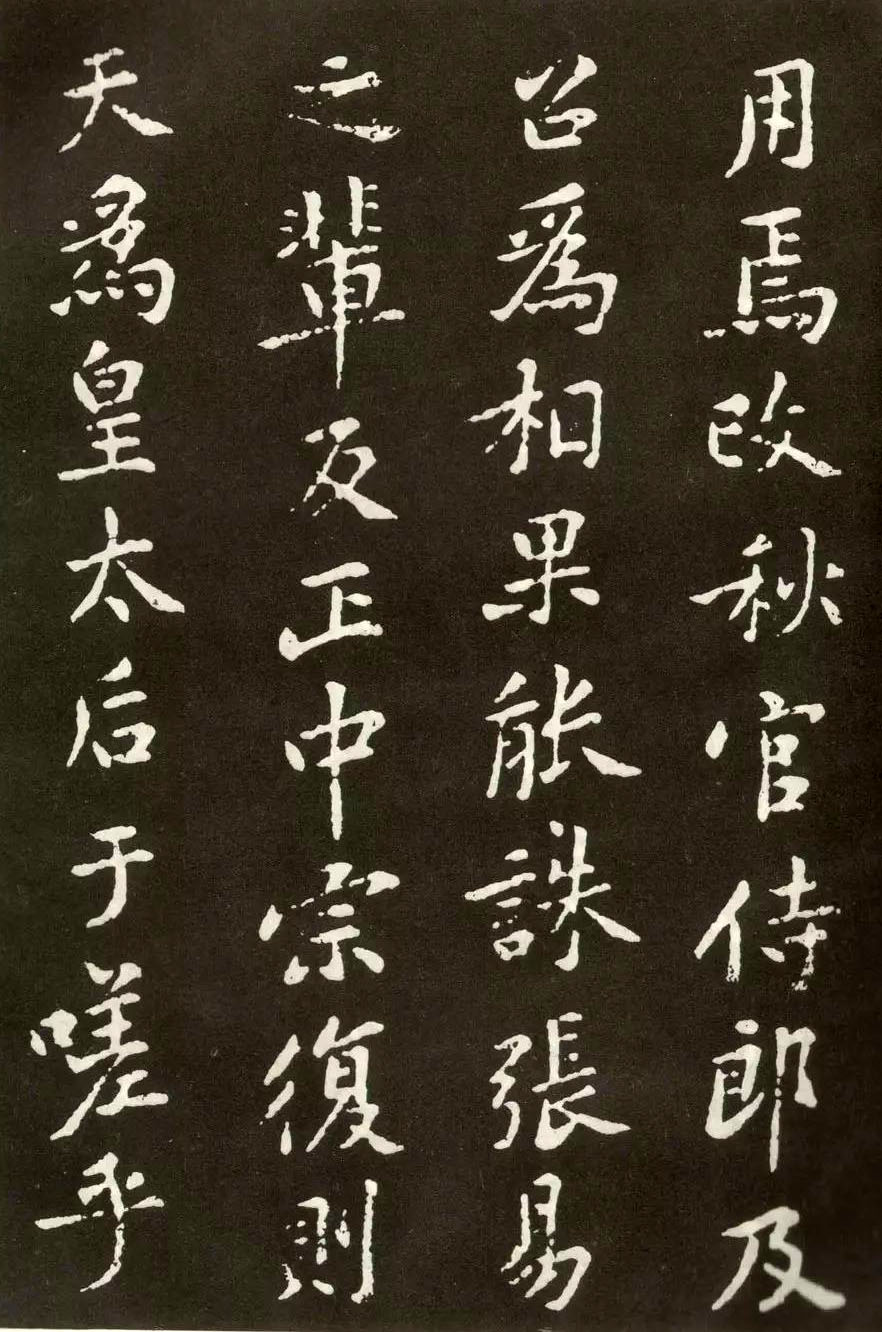 用焉改秋官侍郎及
召爲相果能誅張易
之輩反正中宗復則
天爲皇太后于嗟乎